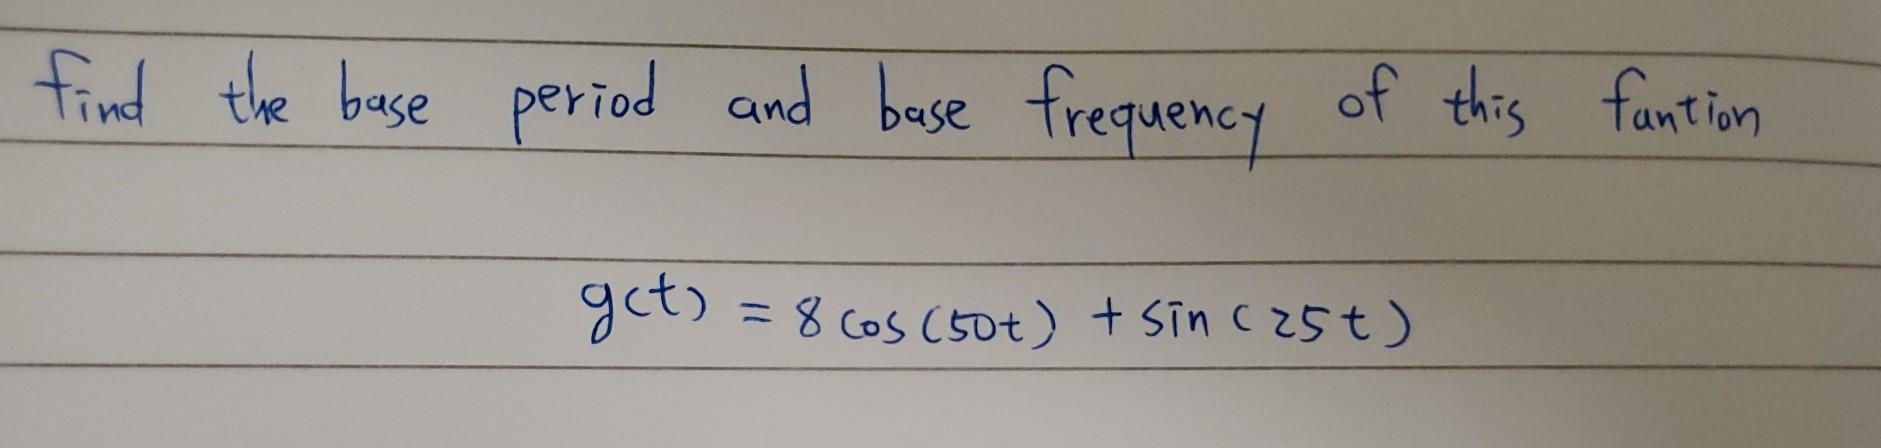 find the base period and base frequency of this fantion
g(t) = 8 cos (50t) + sin (25t)